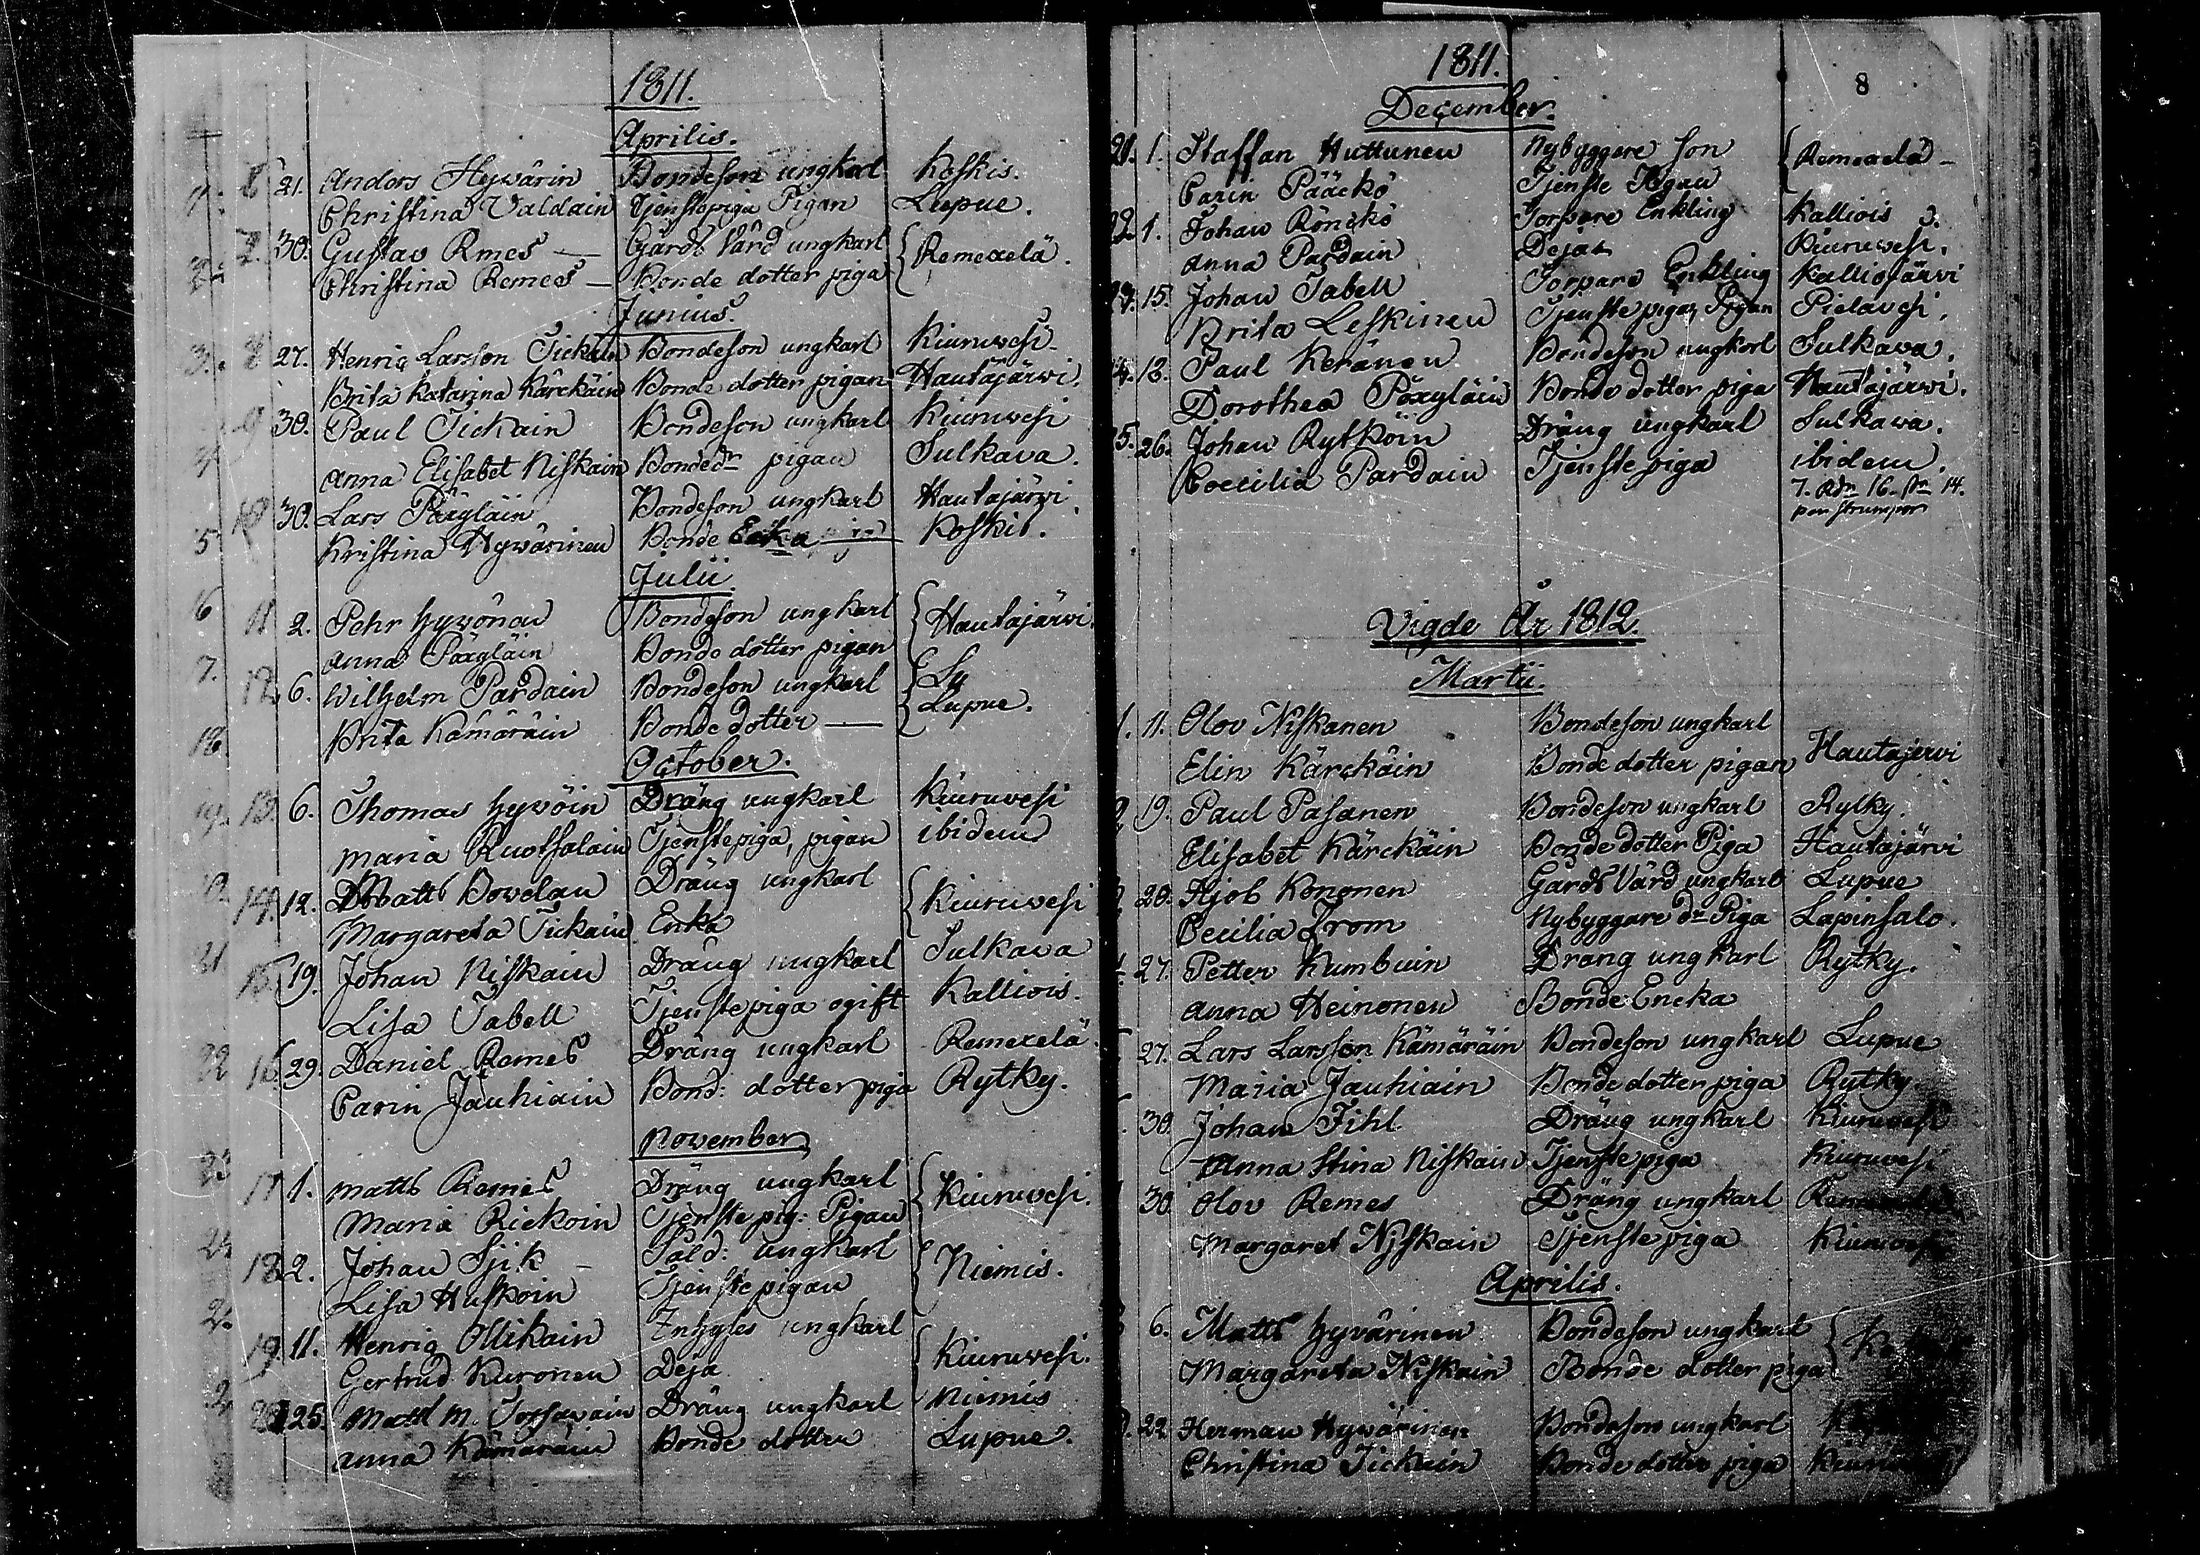 1811.
Aprilis.
8 21. Anders Hywärin Bondeson ungkarl Koskis.
Christina Valdain Tjenstepiga Pigan Lupue.
30. Gustav Rmes — Gårds Värd ungkarl Remexelä.
Christina Remes — Bonde dotter piga
Junius.
27. Henric Larsson Tickain Bondeson ungkarl Kiuruwesi
Brita Katarina Kärckäin Bonde dotter pigan Hautajärwi.
9 30. Paul Tickain Bondeson ungkarl Kiuruwesi
Anna Elisabet Niskain Bondedr pigan Sulkava.
10 30. Lars Pöxyläin Bondeson ungkarl Hautajärwi.
Kristina Hywärinen Bonde Enka Koskis.
Julii
11 2. Pehr Hywönen Bondeson ungkarl Hautajärwi.
Anna Pöxyläin Bonde dotter pigan
12 6. Wilhelm Pardain Bondeson ungkarl Lu
Brita Kämäräin Bonde dotter — Lupue.
October.
13. 6. Thomas Hywöin Dräng ungkarl Kiuruvesi
Maria Ruotsalain Tjenstepiga, pigan ibidem
14. 12. Matts Bovelau Dräng ungkarl Kiuruwesi
Margareta Tickain Enka
15 19. Johan Niskain Dräng ungkarl Sulkava
Lisa Tabell Tjenstepiga ogift Kalliois.
16 29. Daniel Remes Dräng ungkarl Remexelä.
Carin Jauhiain Bond: dotter piga Rytky.
November
17 1. Matts Remes Dräng ungkarl Kiuruvesi.
Maria Rickoin Tjenstepig: Pigan
18 2. Johan Sjik — Sold: ungkarl Niemis.
Lisa Huskoin Tjenstepigan
19 11. Henric Ollikain Inhyses ungkarl Kiuruvesi.
Gertrud Kuronen Deja
25. Matts M. Torsavain Dräng ungkarl Niemis
Anna Kämäräin Bonde dotter Lupue.
1811. 8
December.
21. 1. Staffan Huttunen Nybyggare son Remexelä —
Carin Pääckö Tjenste Pigan
22. 1. Johan Rönckö Torpare Enkling Kalliois
Anna Pardain Dejan Kiuruvesi.
15. Johan Tabell Torpare Enkling Kalliojärvi
Brita Leskinen Tjenste piga, Pigan Pielavesi.
13. Paul Keränen Bondeson ungkarl Sulkava.
Dorothea Pöxyläin Bonde dotter piga Hautajärwi.
25. 26. Johan Rytköin Dräng ungkarl Sulkawa.
Coecilia Pardain Tjenste piga ibidem.
7. Rdr 16. 14.
par strumpor
Vigde År 1812.
Martii.
1. 11. Olov Niskanen Bondeson ungkarl
Elin Kärckäin Bonde dotter pigan Hautajervi
19. Paul Pasanen Bondeson ungkarl Rytky.
Elisabet Kärckäin Bonde dotter Piga Hautajärvi
20. Hjob Kononen Gårds Värd ungkarl Lupue
Cecilia From Nybyggare dr Piga Lapinsalo.
27. Petter Kumbuin Dräng ungkarl Rytky.
Anna Heinonen Bonde Encka
27. Lars Larsson Kämäräin Bondeson ungkarl Lupue
Maria Jauhiain Bonde dotter piga Rytky.
30. Johan Fihl Dräng ungkarl Kiuruvesi
Anna Stina Niskain Tjenstepiga Kiuruvesi
30. Olov Remes Dräng ungkarl
Margaret Niskain Tjenste piga
Aprilis.
6. Matts Hyvärinen Bondeson ungkarl
Margareta Niskain Bonde dotter piga
22 Herman Hyvärinen Bondeson ungkarl
Christina Tickain Bonde dotter piga